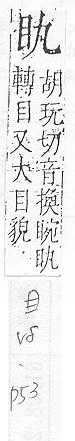 䀓
胡玩切音換睕䀓
轉目又大目貌
目
V8
P53